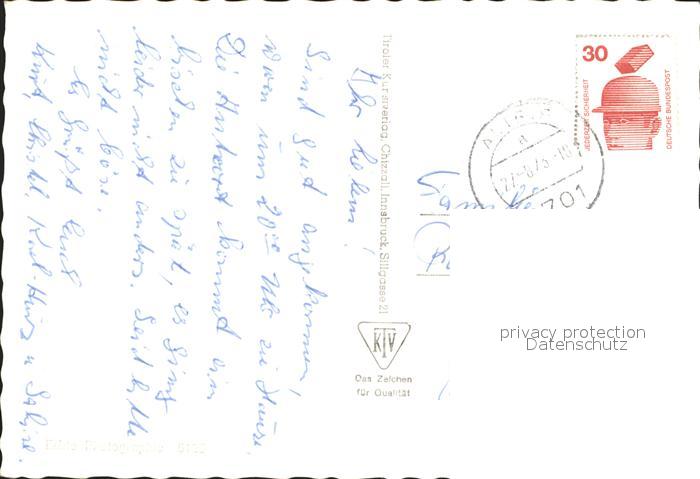 Ihr Lieben!
Sind gut angekommen,
waren um 20 Uhr zu Hause.
Die Antwort kommt ein
bischen zu spät, es ging
leider nicht anders. Seid bitte
nicht böse.
Es grüßt Euch
Kurt, Karl-Heinz u Sabine.
Tiroler Kunstverlag Chizzali, Innsbruck, Sillgasse 21
KTV
Das Zeichen
für Qualität
Echte Photographie
30
JEDERZEIT SICHERHEIT
DEUTSCHE BUNDESPOST
701
privacy protection
Datenschutz